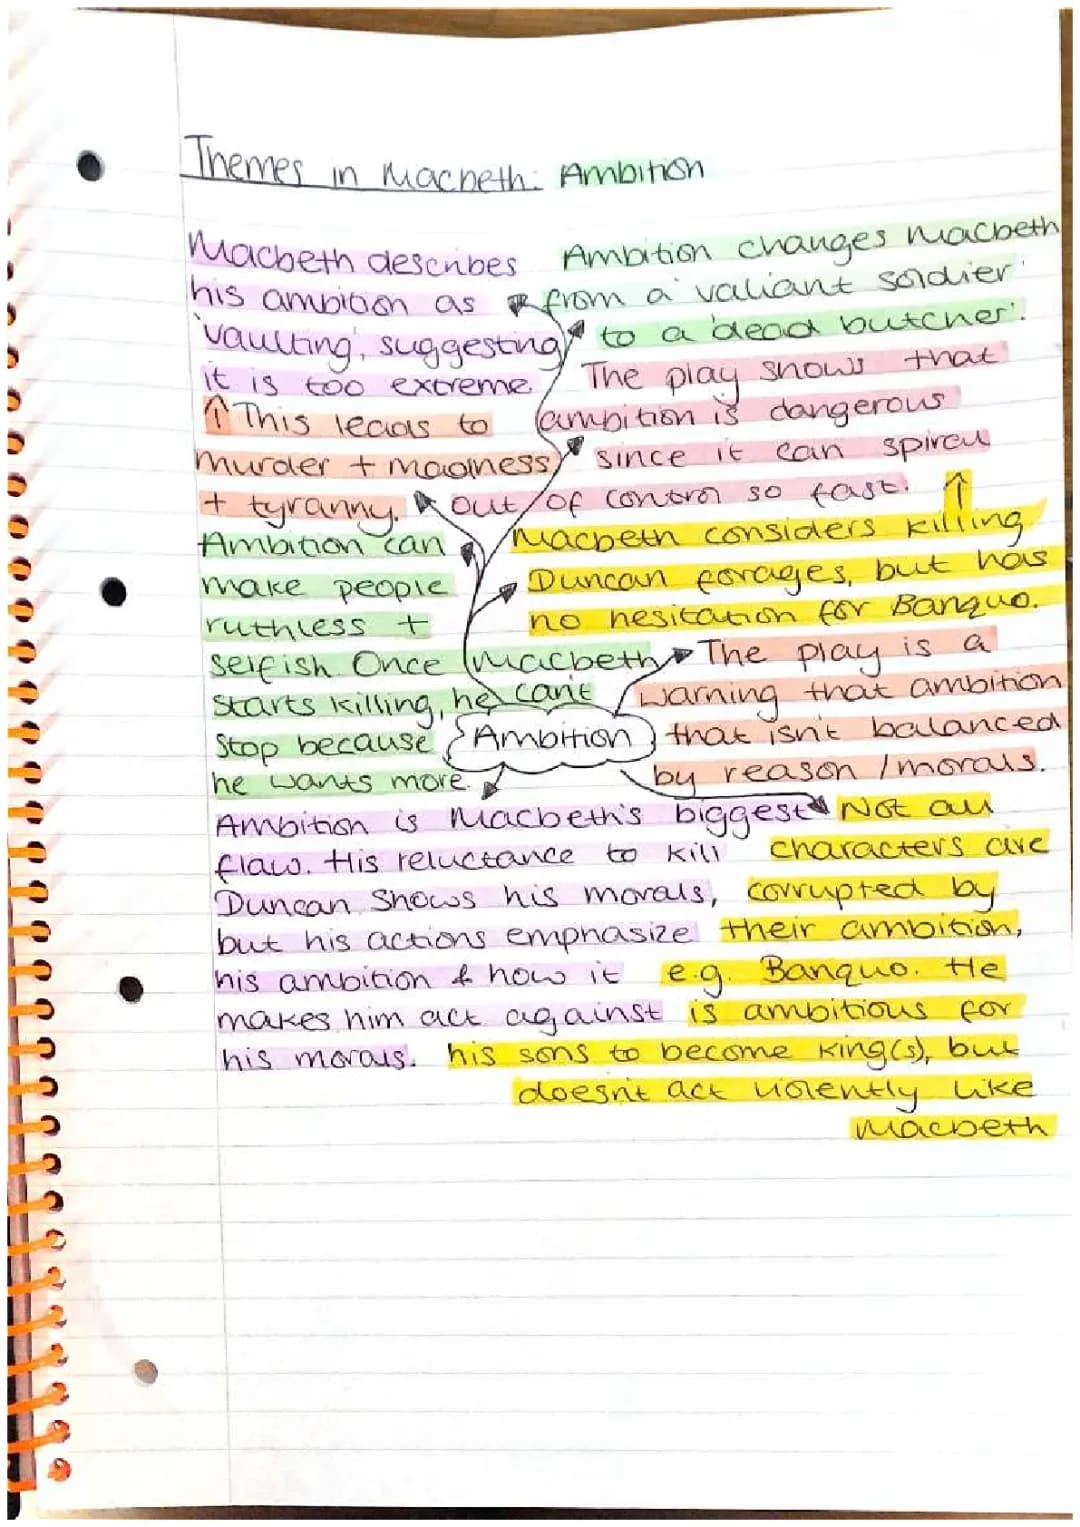 Themes in Macbeth: Ambition
Macbeth describes
his ambition as
'vaulting', suggesting
it is too extreme.
↑ This leads to
murder + madness
+ tyranny.
Ambition changes Macbeth
from a 'valiant soldier'
to a 'dead butcher'.
The play shows that
ambition is dangerous
since it can spiral
out of control so fast. ↑
Macbeth considers killing
Duncan for ages, but has
no hesitation for Banquo.
Ambition can
make people
ruthless +
selfish. Once Macbeth
starts killing, he can't
stop because
he wants more.
The play is a
warning that ambition
that isn't balanced
by reason / morals.
Ambition
Ambition is Macbeth's biggest
flaw. His reluctance to kill
Duncan shows his morals,
but his actions emphasize
his ambition & how it
makes him act against
his morals.
Not all
characters are
corrupted by
their ambition,
e.g. Banquo. He
is ambitious for
his sons to become king(s), but
doesn't act violently like
Macbeth